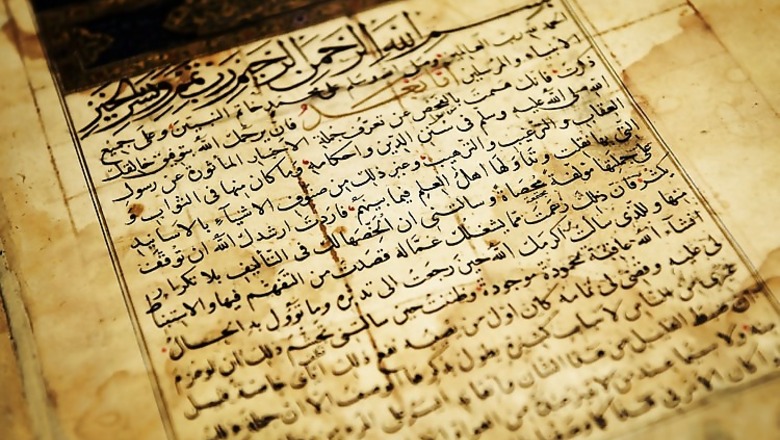 بسم الله الرحمن الرحيم رب تمم ويسر الخير
الحمد لله رب العالمين وصلى الله على محمد خاتم النبيين وعلى جميع
الانبياء والمرسلين اما بعد فانك يرحمك الله بتوفيق خالقك
ذكرت انك هممت بالفحص عن تعرف جملة الاخبار الماثورة عن رسول
الله صلى الله عليه وسلم في سنن الدين واحكامه وما كان منها في الثواب و
العقاب والترغيب والترهيب وغير ذلك من صنوف الاشياء بالاسانيد
التي بها نقلت وتداولها اهل العلم فيما بينهم فاردت ارشدك الله ان توقف
على جملتها مؤلفة محصاة وسالتني ان الخصها لك في التاليف بلا تكرار
يكثر فان ذلك زعمت مما يشغلك عما له قصدت من التفهم فيها والاستنباط
منها وللذي سالت اكرمك الله حين رجعت الى تدبره وما تؤول به الحال
ان شاء الله عاقبة محمودة موجودة وظننت حين سالتني تجشم ذلك ان لو عزم
لي عليه وقضي لي تمامه كان اول من يصيبه نفع ذلك اياي خاصة قبل
غيري من الناس لاسباب كثيرة يطول بذكرها الوصف الا ان جملة ذلك
ان ضبط القليل من هذا الشان